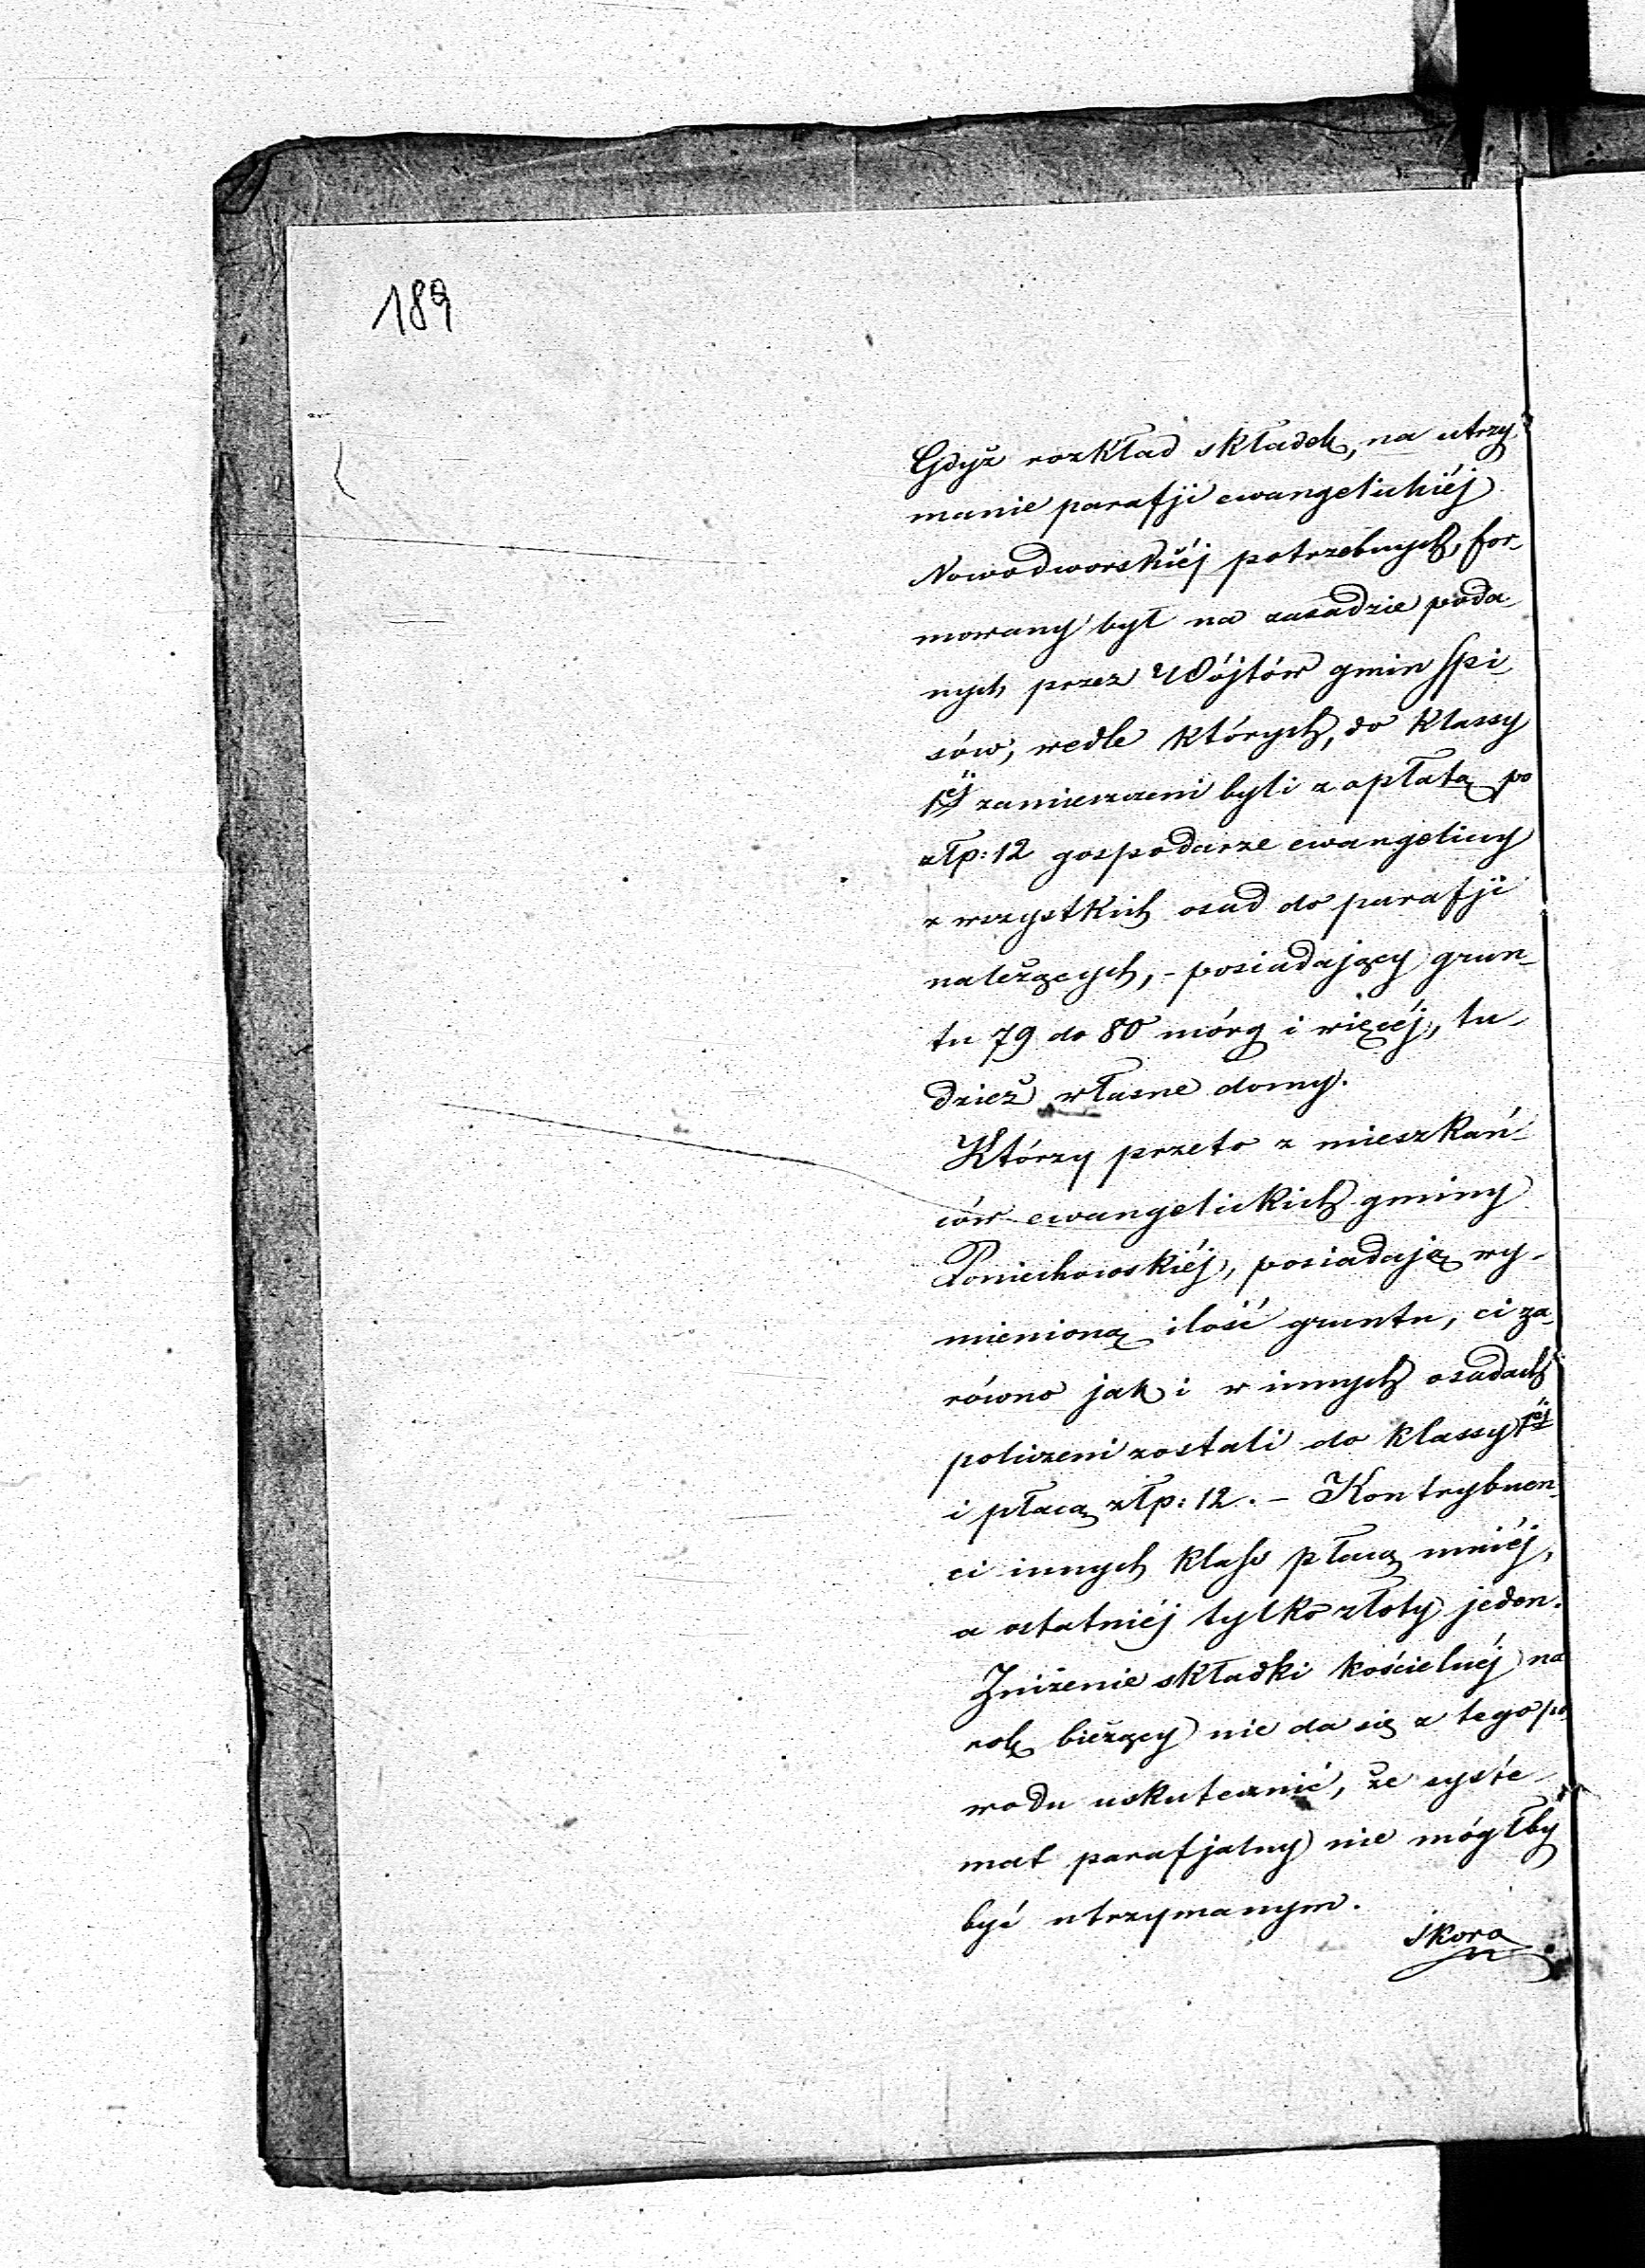 189
Gdyż rozkład składek, na utrzy
manie parafji ewangelickiéj
Nowodworskiéj potrzebnych, for-
mowany był na zasadzie poda-
nych przez Wójtów gmin spi-
sów, wedle których, do klassy
1éj zamieszczeni byli z opłatą po
złp: 12 gospodarze ewangeliccy
z wszystkich osad do parafji
należących, - posiadający grun-
tu 79 do 80 mórg i więcéj, tu-
dzież własne domy.
Którzy przeto z mieszkań-
ców ewangelickich gminy
Pomiechowskiéj, posiadają wy-
mienioną ilość gruntu, ci za-
równo jak i w innych osadach
policzeni zostali do klassy 1éj
i płacą złp: 12. - Kontrybuen-
ci innych klass płacą mniéj,
a ostatniéj tylko złoty jeden.
Zniżenie składki kościelnéj na
rok bieżący nie da się z tego po
wodu uskutecznić, że systé-
mat parafjalny nie mógłby
być utrzymanym.
Skora